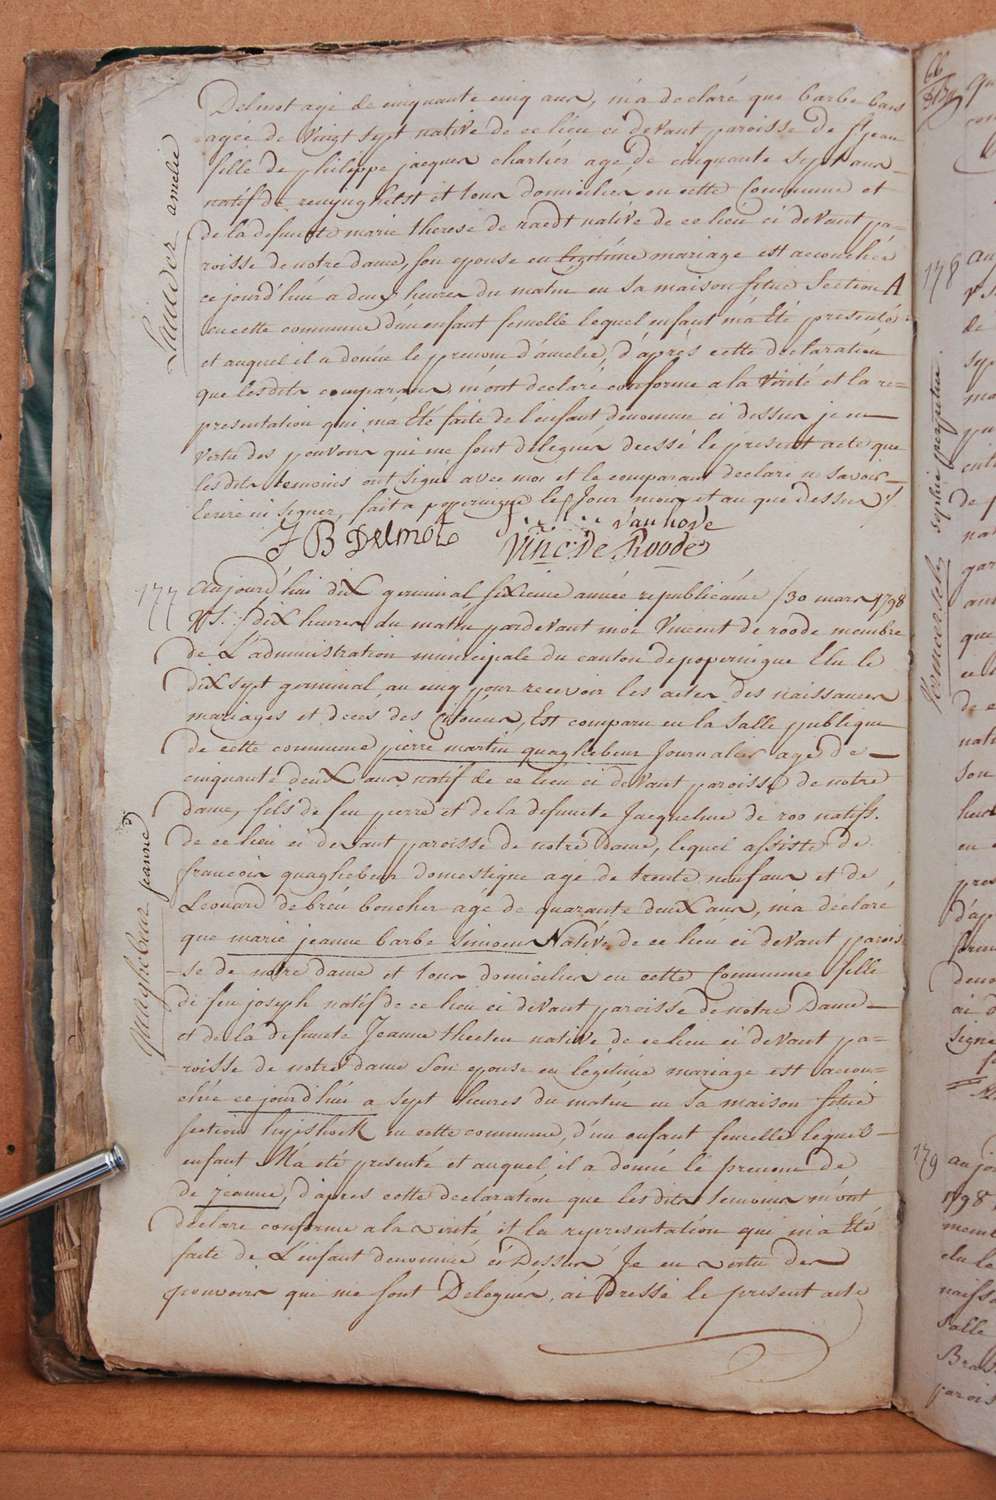 Delmot agé de cinquante cinq ans, m'a declaré que barbe
agée de vingt sept native de ce lieu ci devant paroisse de st jean
fille de philippe jacques chartier agé de cinquante sept ans
natif de renynghelst et tous domicilies en cette Commune et
de la defuncte marie therese de raedt native de ce lieu ci devant pa=
roisse de notre dame, son epouse en legitime mariage est accouchée
ce jourd'hui a deux heures du matin en sa maison situé Section A
en cette commune d'un enfant femelle lequel enfant m'a Eté presenté
et auquel il a donné le prenom d'amelie, d'après cette declaration
que lesdits comparans m'ont declaré conforme a la Verité et la re=
presentation qui m'a Eté faite de l'enfant denommé ci dessus je en
vertu des pouvoirs qui me sont delegués dressé le present acte que
lesdits temoins ont signé avec moi et le comparant declare ne savoir
Ecrire ni signer, fait a poperingue les Jour mois et an que dessus
J B Delmote vanhove
Vinc. De Roode
Lauwer amelie
177 aujourd'hui dix germinal sixieme année republicaine /30 mars 1798
VS:/ dix heures du matin pardevant moi Vincent de roode membre
de L'administration municipale du canton de poperingue Elu le
dix sept germinal an cinq pour recevoir les actes des naissances
mariages et deces des Citoiens, Est comparu en la Salle publique
de cette commune pierre martin quaghebeur Journalier agé de
cinquante deux ans natif de ce lieu ci devant paroisse de notre
dame, fils de feu pierre et de la defuncte Jacqueline de roo natifs.
de ce lieu ci devant paroisse de notre Dame, lequel assisté de
francois quaghebeur domestique agé de trente neuf ans et de
Léonard debreu boucher agé de quarante deux ans, m'a déclaré
que marie jeanne barbe Simoens Native de ce lieu ci devant parois
=se de notre dame et tous domicilies en cette Commune fille
de feu joseph natif de ce lieu ci devant paroisse de notre Dame
et de la defuncte Jeanne theeten native de ce lieu ci devant pa=
=roisse de notre dame Son epouse en légitime mariage est accou=
chée ce jourd'hui a sept heures du matin en Sa maison situé
Section en cette commune, d'un enfant femelle lequel
enfant M'a eté presenté et auquel il a donné le prenom de
de jeanne, d'apres cette declaration que lesdits temoins m'ont
declaré conforme a la verité et la representation qui m'a Eté
faite de L'enfant denommé ci Dessus Je en vertu des
pouvoirs que me sont Delegués, ai Dressé le present acte
quaghebeur jeanne
66
178
sophie
179
1798